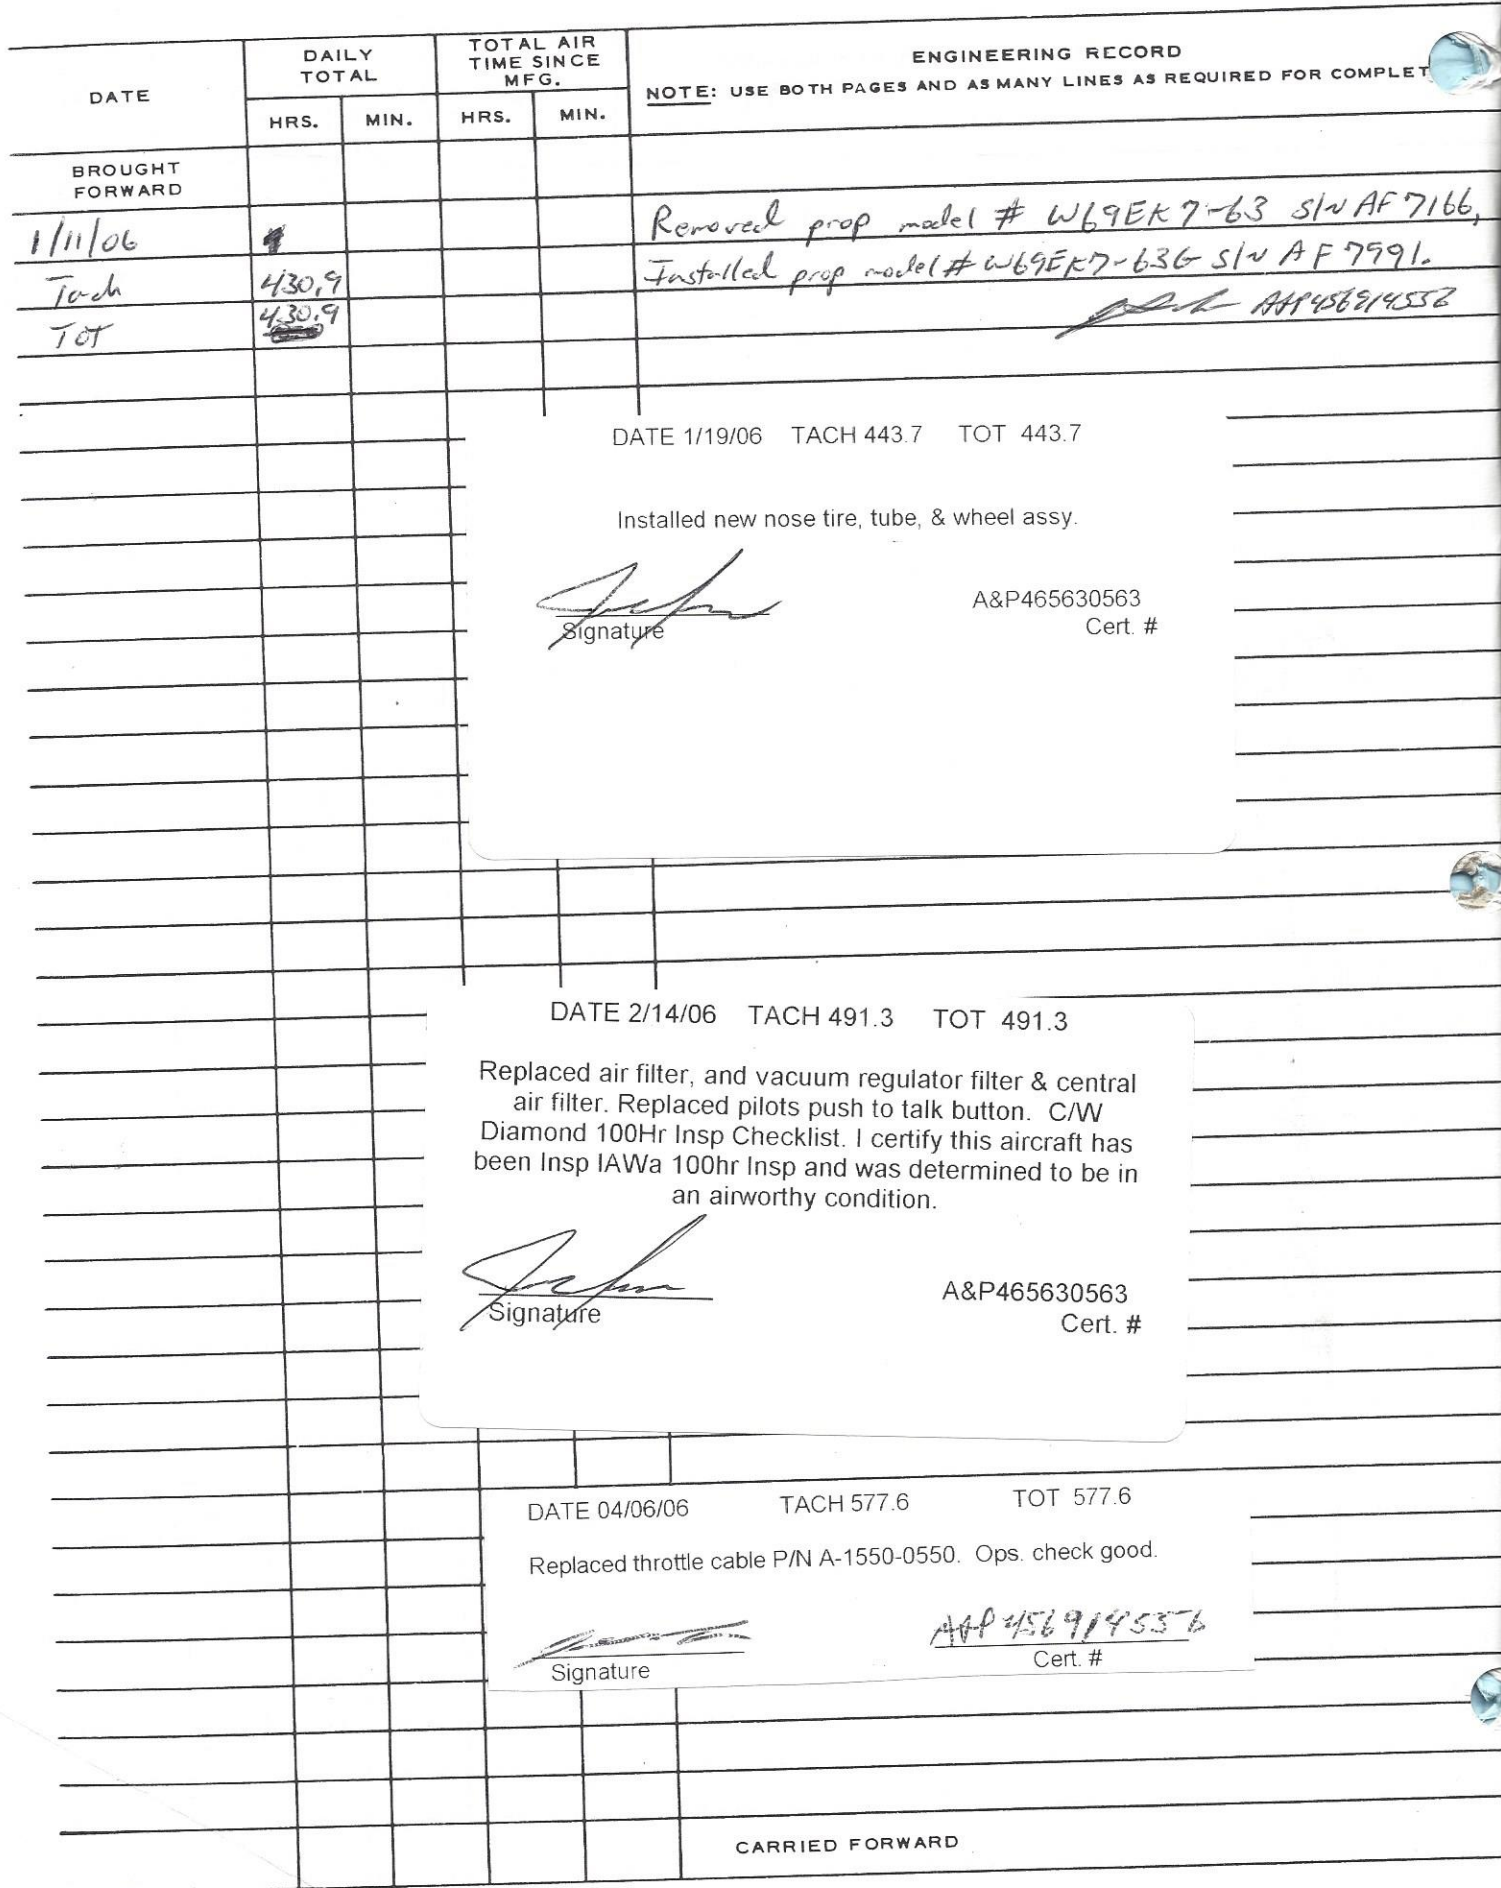 DATE
DAILY TOTAL
TOTAL AIR TIME SINCE MFG.
ENGINEERING RECORD
NOTE: USE BOTH PAGES AND AS MANY LINES AS REQUIRED FOR COMPLET
HRS. MIN. HRS. MIN.
BROUGHT FORWARD
1/11/06 Removed prop model # W69EK7-63 S/N AF7166,
Tach 430.9 Installed prop model # W69EK7-63G S/N AF7991.
TOT 430.9 A&P456914556
DATE 1/19/06 TACH 443.7 TOT 443.7
Installed new nose tire, tube, & wheel assy.
A&P465630563
Signature Cert. #
DATE 2/14/06 TACH 491.3 TOT 491.3
Replaced air filter, and vacuum regulator filter & central
air filter. Replaced pilots push to talk button. C/W
Diamond 100Hr Insp Checklist. I certify this aircraft has
been Insp IAWa 100hr Insp and was determined to be in
an airworthy condition.
A&P465630563
Signature Cert. #
DATE 04/06/06 TACH 577.6 TOT 577.6
Replaced throttle cable P/N A-1550-0550. Ops. check good.
A&P 456914556
Signature Cert. #
CARRIED FORWARD